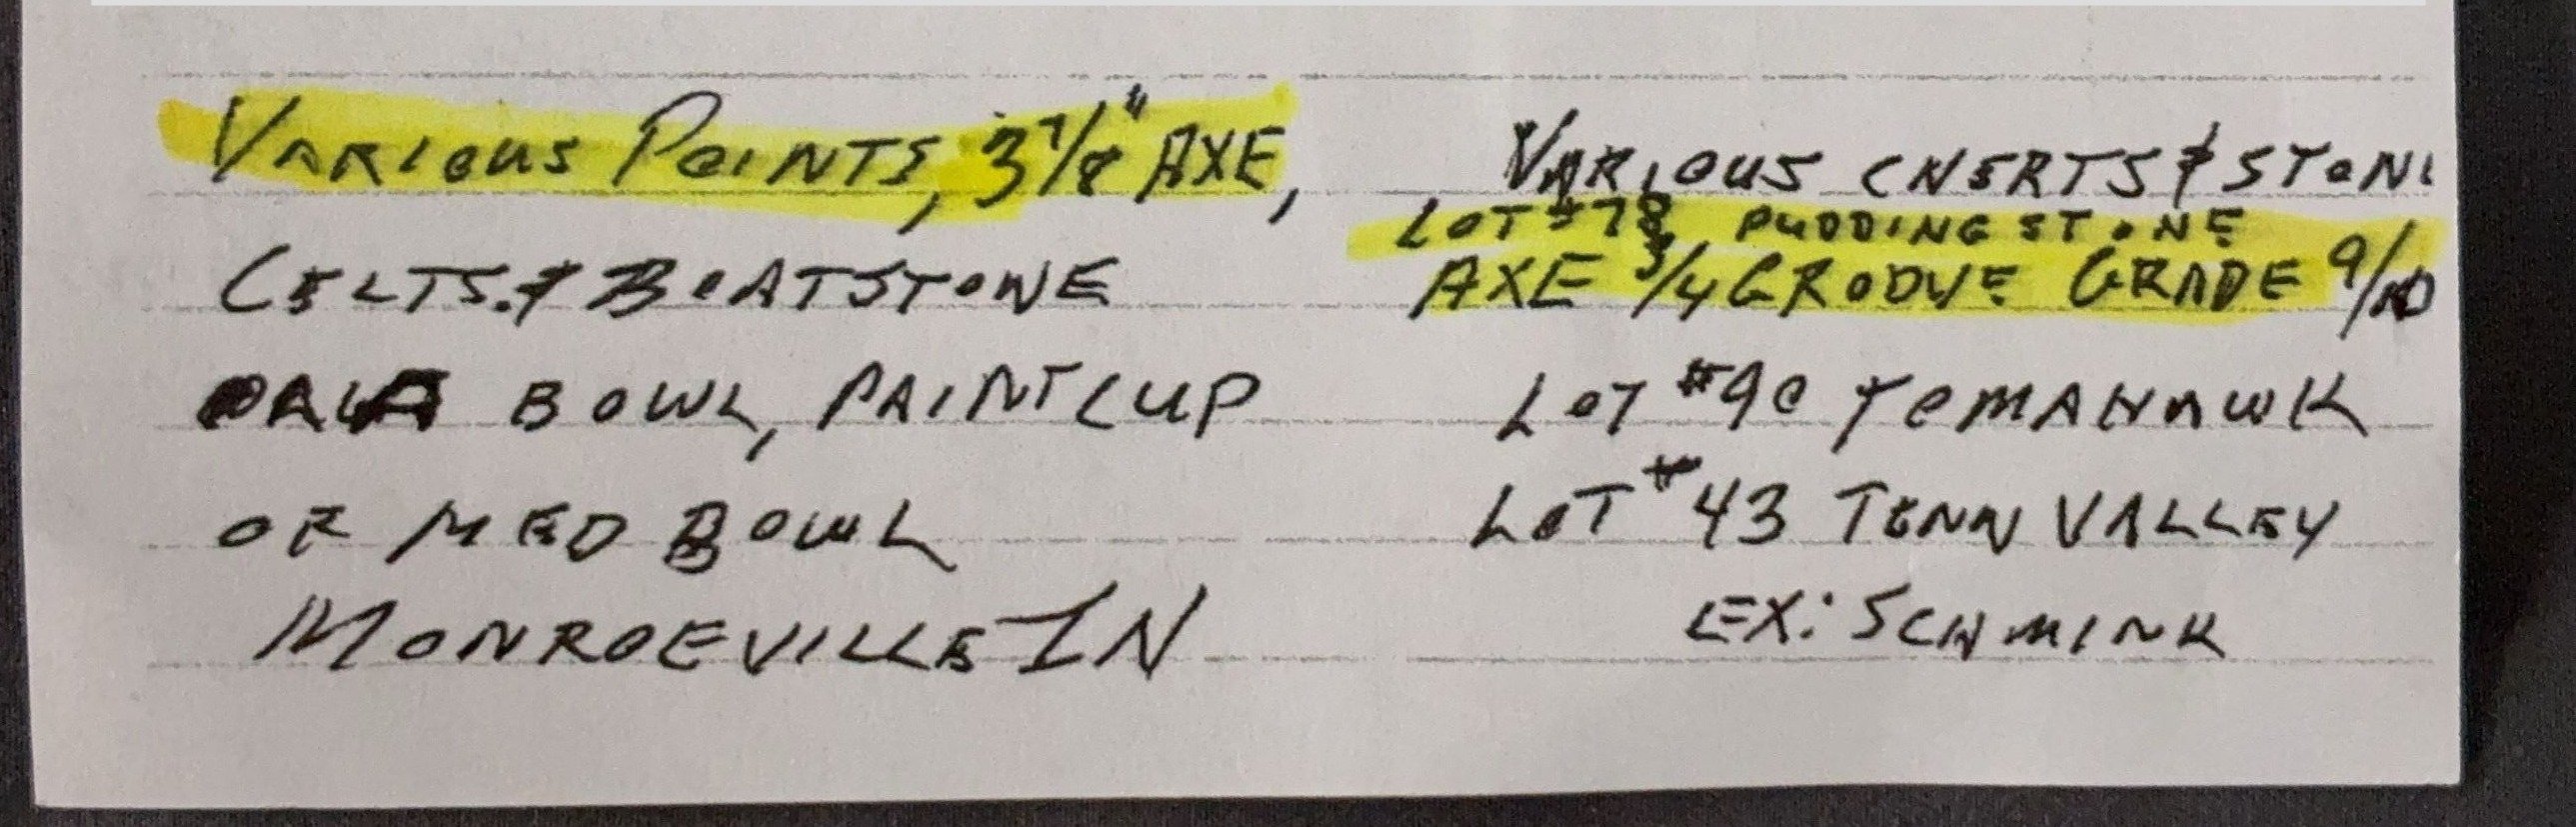 VARIOUS POINTS, 3 7/8" AXE,
CELTS. & BOATSTONE
BOWL, PAINT CUP
OR MED BOWL
MONROEVILLE IN
VARIOUS CHERTS & STON
LOT #78 PUDDINGSTONE
AXE 3/4 GROOVE GRADE 9/10
LOT #90 TOMAHAWK
LOT #43 TENN VALLEY
EX: SCHMINK